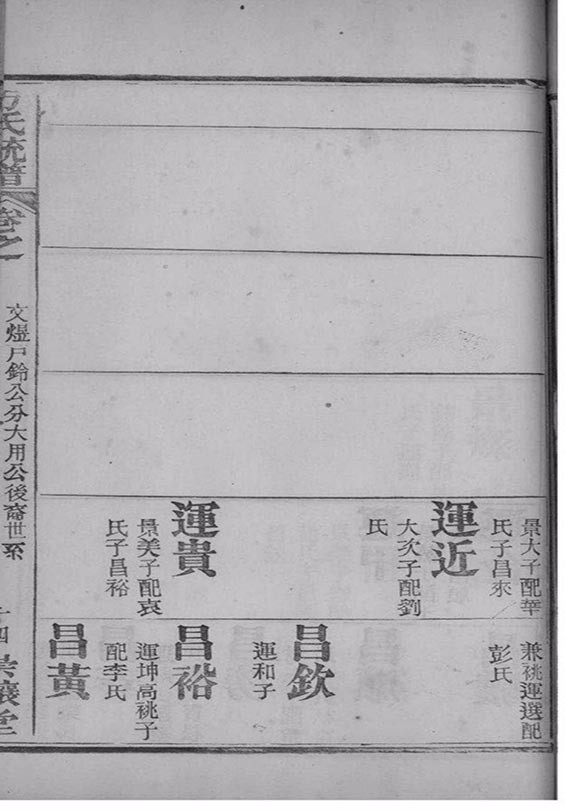 景大子配華
氏子昌來
運近
大次子配劉
氏
運貴
景美子配袁
氏子昌裕
兼祧運選配
彭氏
昌欽
運和子
昌裕
運坤高祧子
配李氏
昌黃
氏統譜
卷之一
文煜戶鈴公分大用公後裔世系
十四